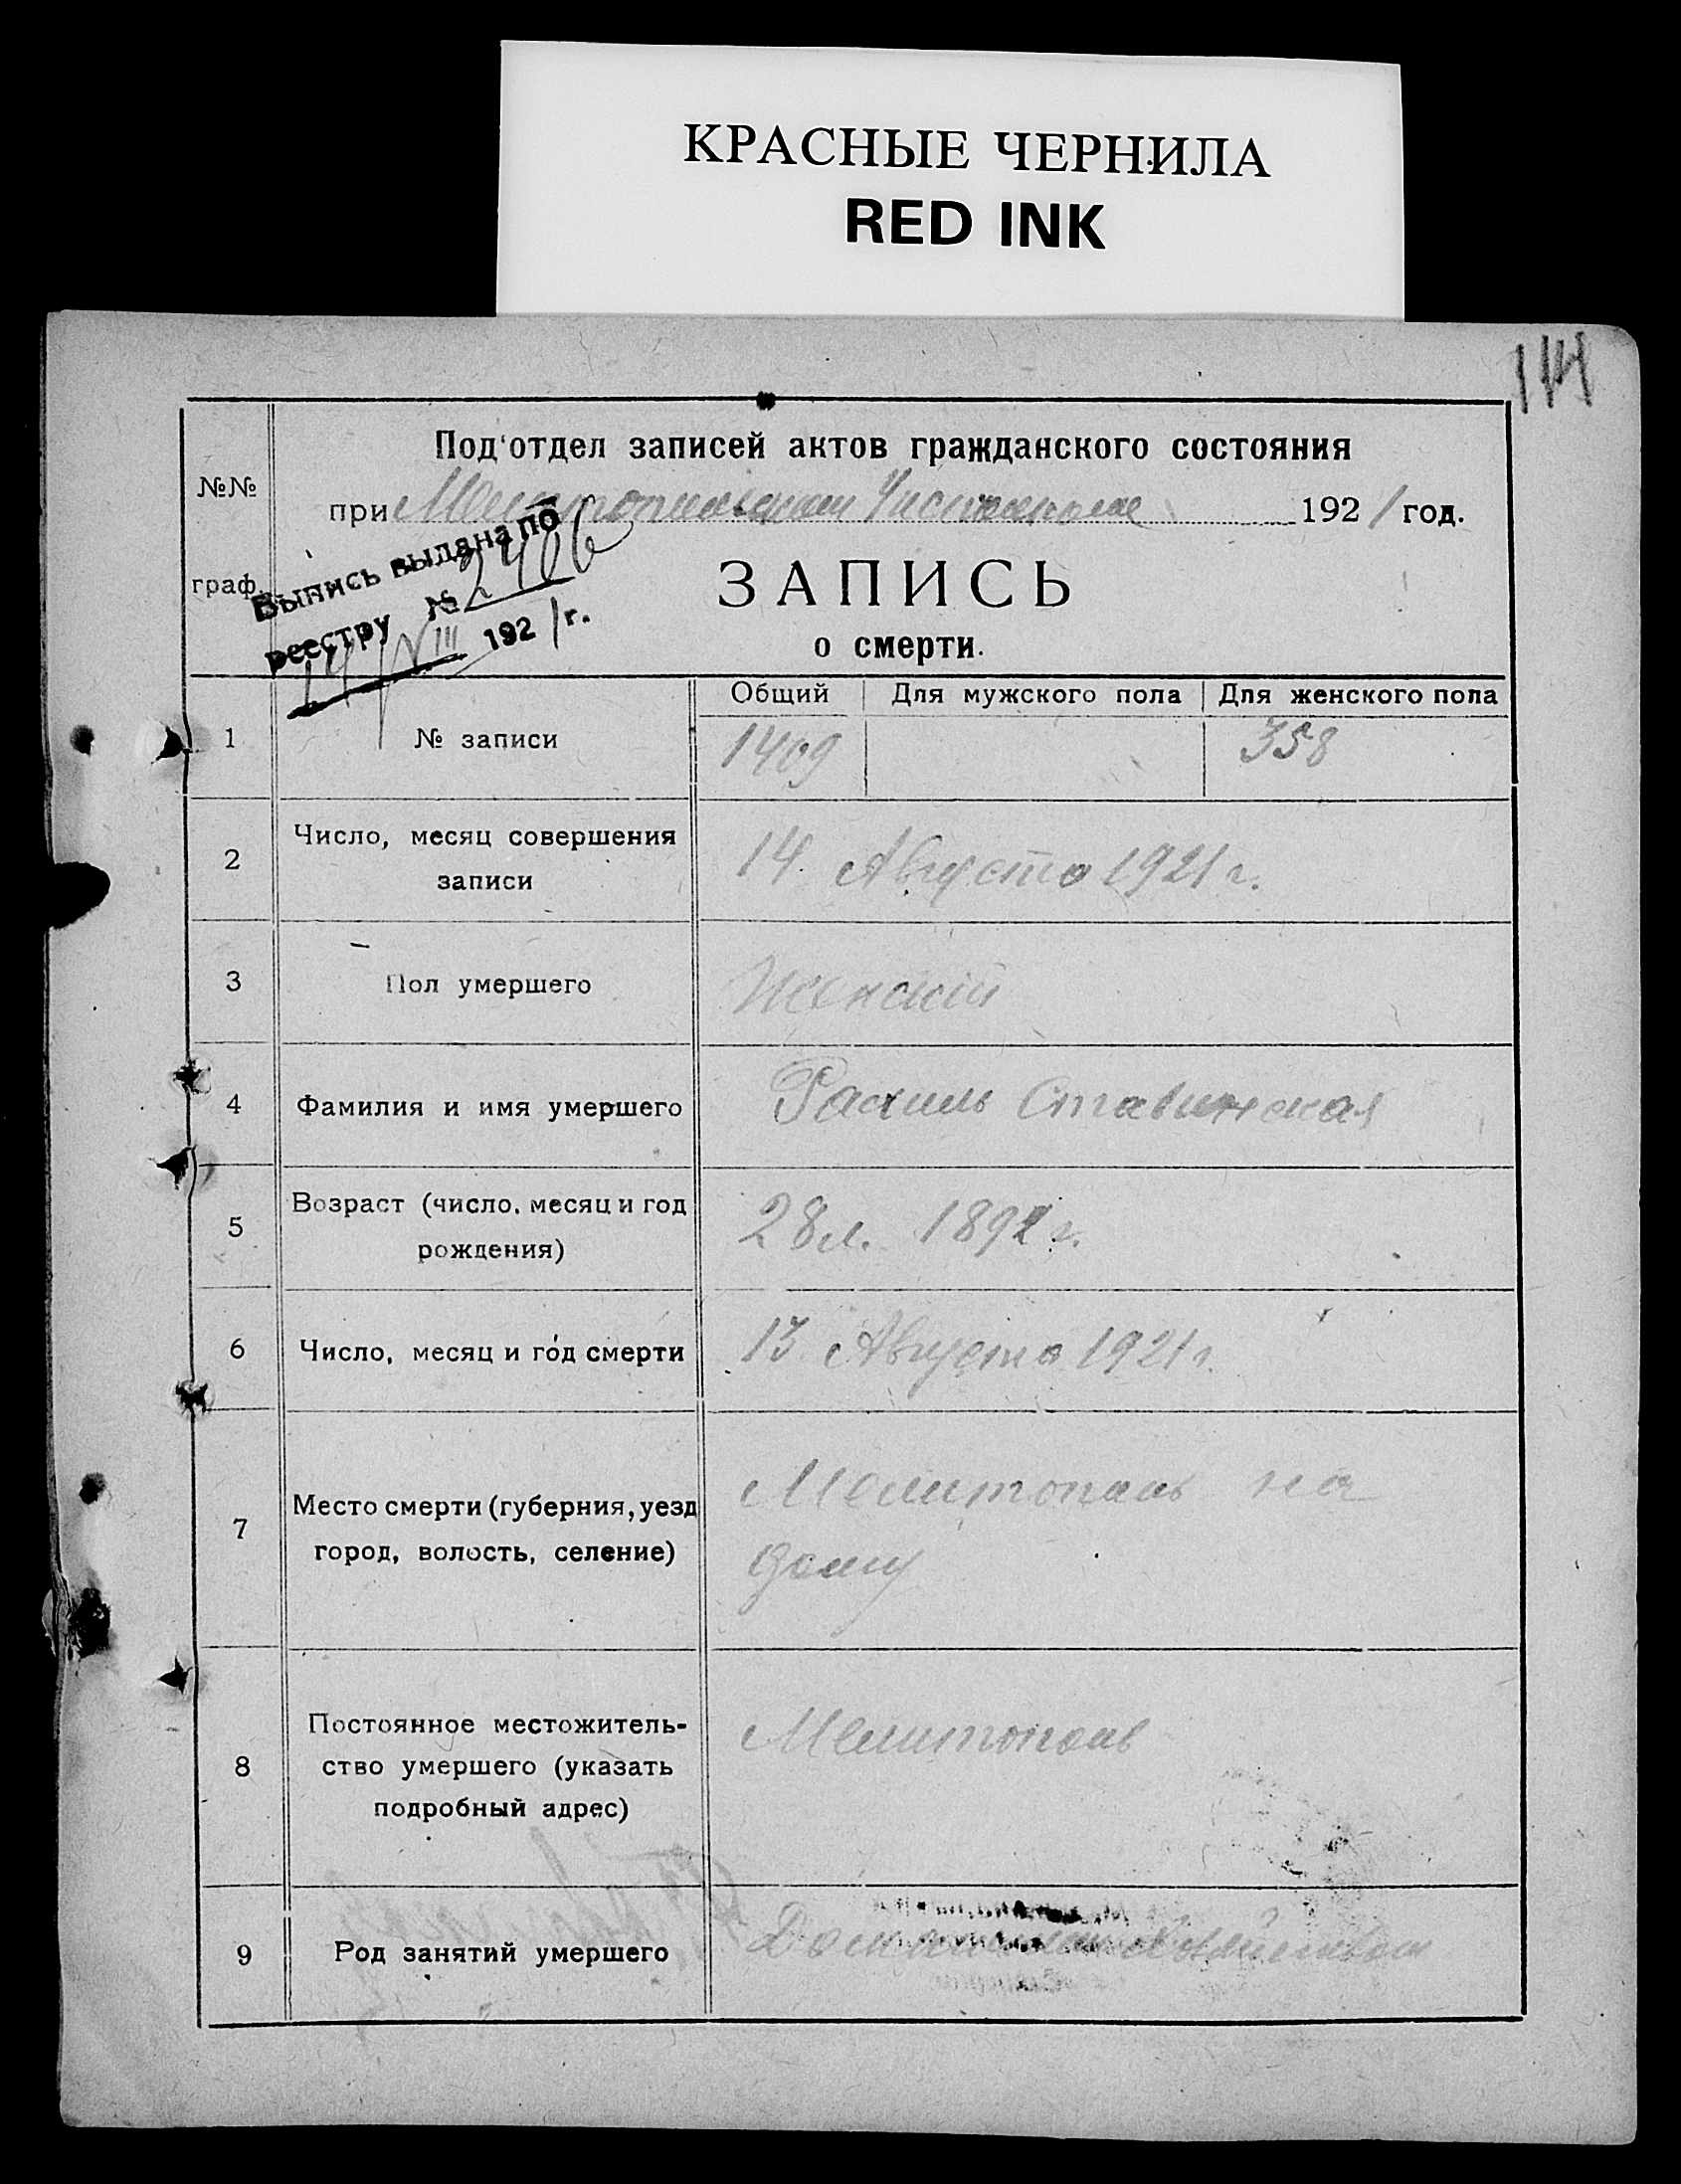 КРАСНЫЕ ЧЕРНИЛА
RED INK
114
Под'отдел записей актов гражданского состояния
№№
при Мелитопольском Уисполкоме 1921 год.
граф.
Выпись выдана по
реестру № 2406
14/VIII 1921 г.
ЗАПИСЬ
о смерти.
Общий Для мужского пола Для женского пола
1 № записи 1409 358
2 Число, месяц совершения
записи
14. Августа 1921 г.
3 Пол умершего Женский
4 Фамилия и имя умершего Рахиль Ставинская
5 Возраст (число, месяц и год
рождения)
28 л. г.
6 Число, месяц и год смерти 13 Августа 1921 г.
7 Место смерти (губерния, уезд
город, волость, селение)
Мелитополь на
дому
8 Постоянное местожитель-
ство умершего (указать
подробный адрес)
Мелитополь
9 Род занятий умершего